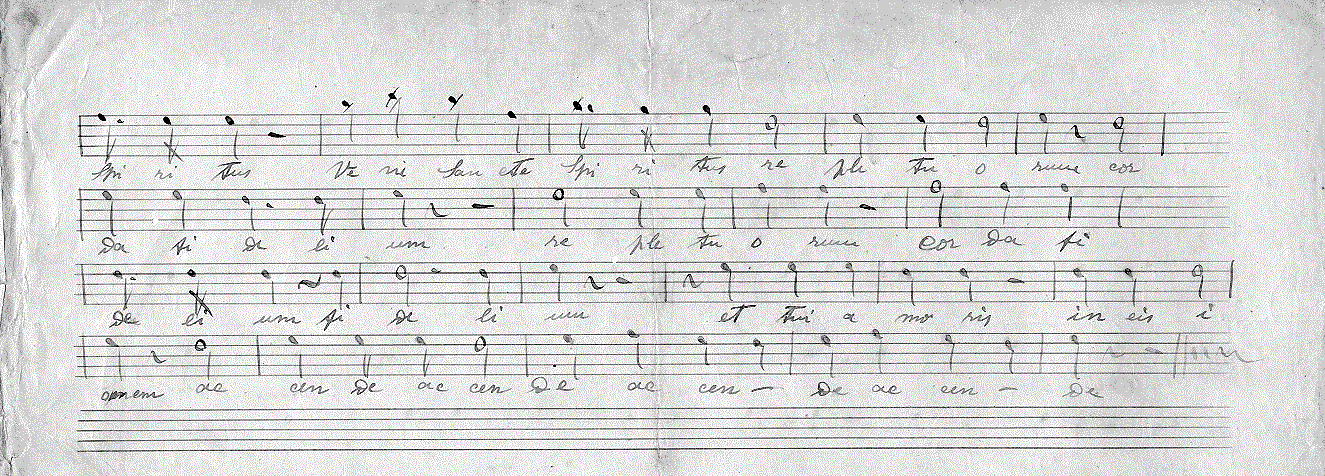 Spi ri tus Ve ni San cte Spi ri tus re ple tu o rum cor
Da fi de li um re ple tu o rum cor Da fi
De li um fi de li um et tui a mo ris in eis i
ac cen De ac cen De ac cen – De ac cen – De